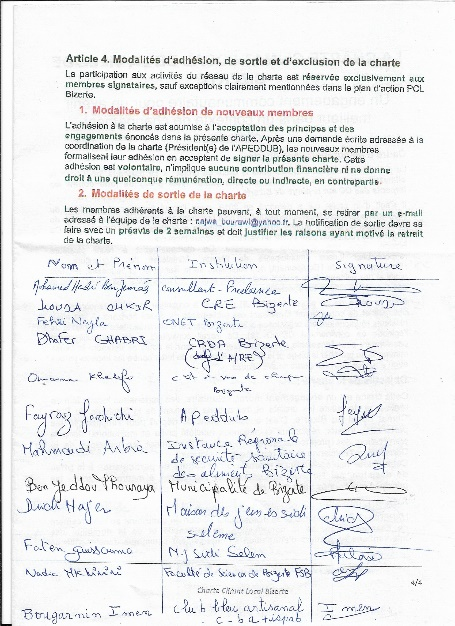 Article 4. Modalités d'adhésion, de sortie et d'exclusion de la charte
La participation aux activités du réseau de la charte est réservée exclusivement aux
membres signataires, sauf exceptions clairement mentionnées dans le plan d'action PCL
Bizerte.
1. Modalités d'adhésion de nouveaux membres
L'adhésion à la charte est soumise à l'acceptation des principes et des
engagements énoncés dans la présente charte. Après une demande écrite adressée à la
coordination de la charte (Président(e) de l'APEDDUB), les nouveaux membres
formalisent leur adhésion en acceptant de signer la présente charte. Cette
adhésion est volontaire, n'implique aucune contribution financière ni ne donne
droit à une quelconque rémunération, directe ou indirecte, en contrepartie.
2. Modalités de sortie de la charte
Les membres adhérents à la charte peuvent, à tout moment, se retirer par un e-mail
adressé à l'équipe de la charte : najwa_bourawi@yahoo.fr. La notification de sortie devra se
faire avec un préavis de 2 semaines et doit justifier les raisons ayant motivé le retrait
de la charte.
Nom et Prénom Institution Signature
Mohamed Hedi consultant - Freelance
CRE Bizerte
Fehri Najla CNET Bizerte
Dhafer GHABRI CRDA Bizerte
Oumama Khalifa
Bizerte
Fayrouz Apeddub
Mahmoudi Instance Régionale
de sécurité sanitaire
des aliments Bizerte
Ben Jeddou Thouraya Municipalité de Bizerte
Hajer Maison des jeunes sidi
selème
Faten M.J Sidi Selem
Nadia Faculté de Sciences de Bizerte FSB
Charte Climat Local Bizerte
4/4
Bougarmin Imen Club bleu artisanal Imen